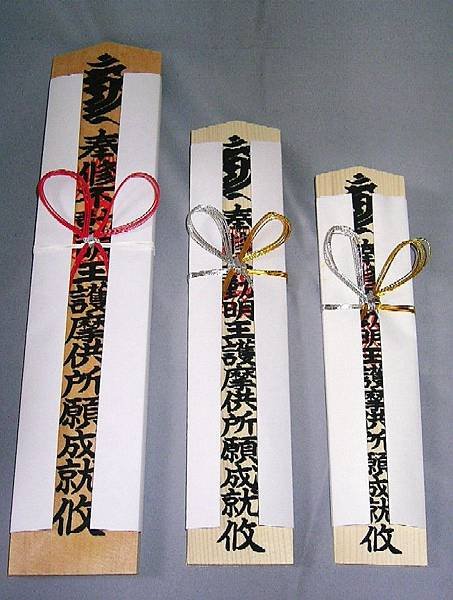 奉修不動明王護摩供所願成就攸
奉修不動明王護摩供所願成就攸
奉修不動明王護摩供所願成就攸